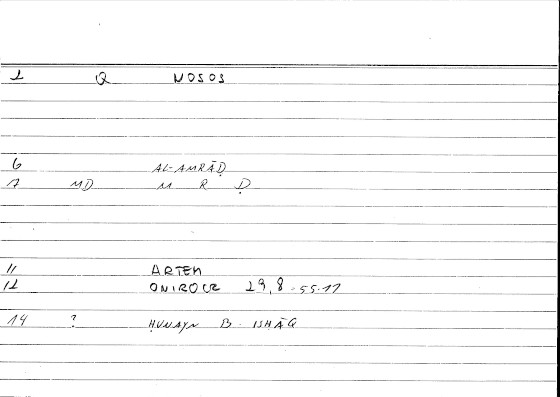 1 Q NOSOS
6 AL-AMRĀḌ
7 MD M R Ḍ
11 ARTEM
12 ONIROCR 29,8 - 55.17
14 ? ḤUNAYN B. ISḤĀQ